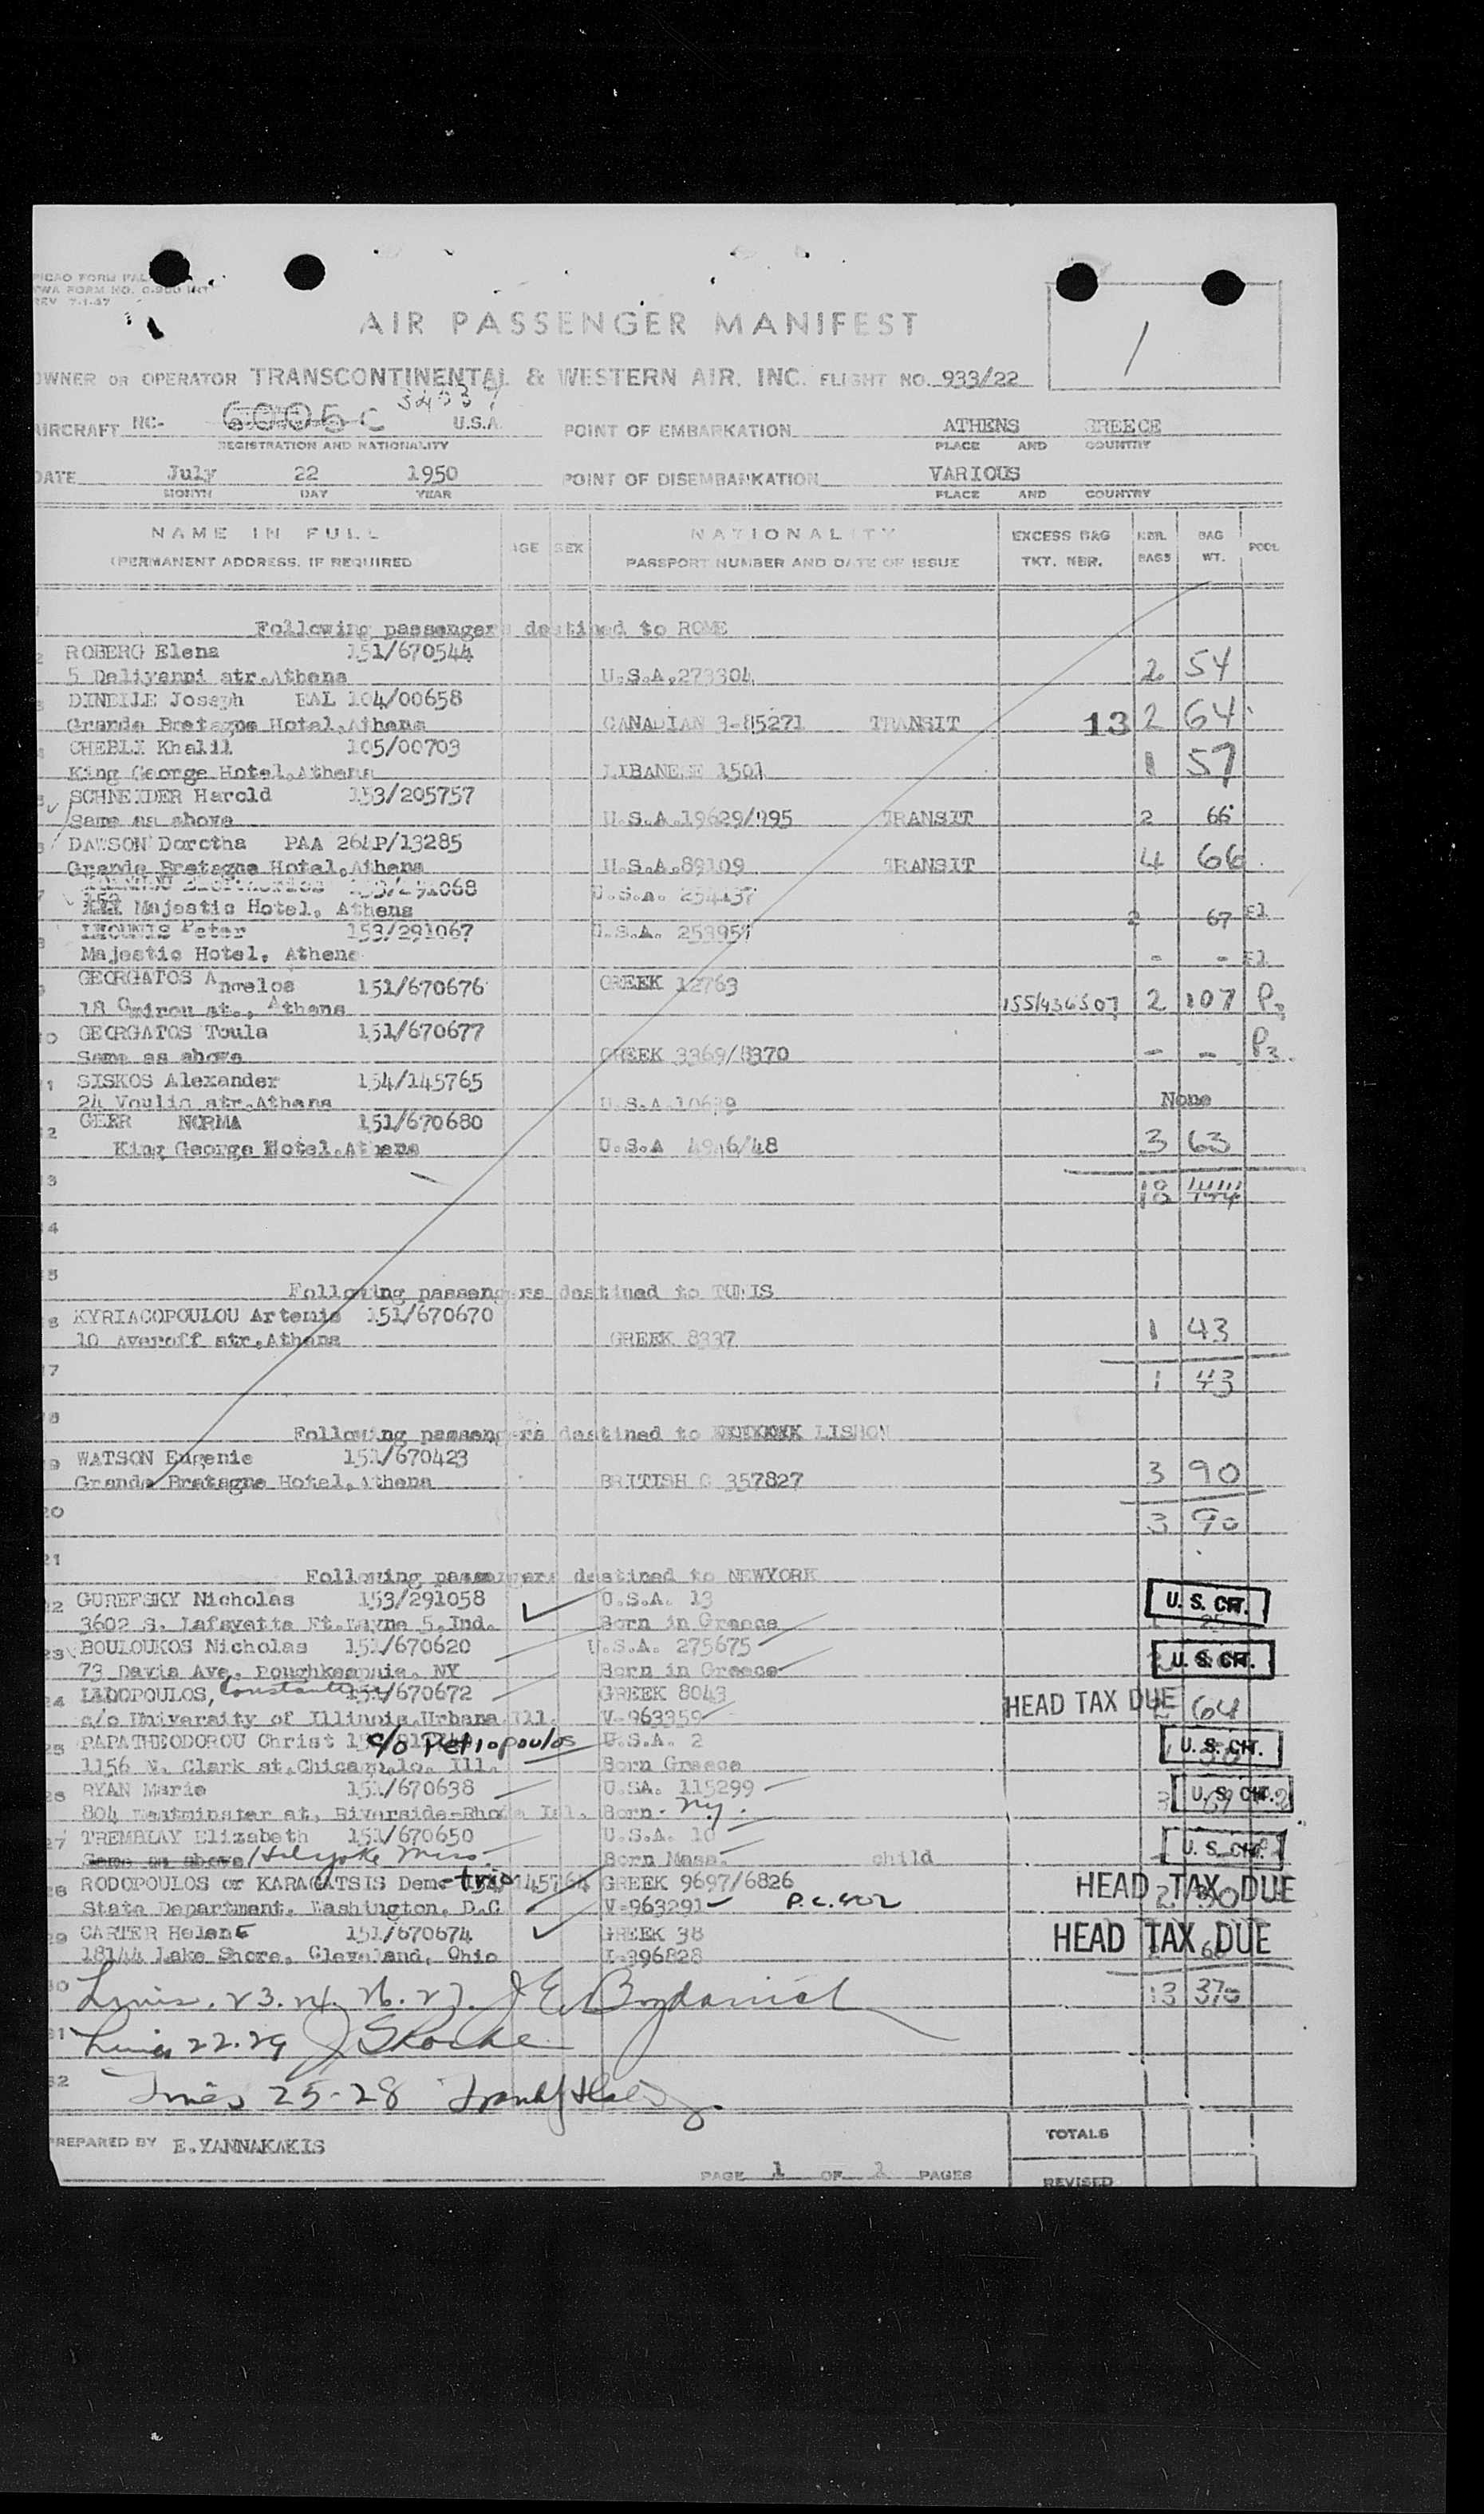 AIR PASSENGER MANIFEST
1
OWNER OR OPERATOR TRANSCONTINENTAL & WESTERN AIR, INC. FLIGHT NO. 933/22
AIRCRAFT NC- 6006 C U.S.A. POINT OF EMBARKATION ATHENS GREECE
REGISTRATION AND NATIONALITY PLACE AND COUNTRY
DATE July 22 1950 POINT OF DISEMBARKATION VARIOUS
MONTH DAY YEAR PLACE AND COUNTRY
NAME IN FULL AGE SEX NATIONALITY EXCESS BAG NBR. BAG POOL
(PERMANENT ADDRESS, IF REQUIRED) PASSPORT NUMBER AND DATE OF ISSUE TKT. NBR. BAGS WT.
Following passengers destined to ROME
ROBERG Elena 151/670544
5 Deliyanni str.Athens U.S.A.273304 2 54
DINEILE Joseph BAL 104/00658
Grande Bretagne Hotel,Athens CANADIAN 3-85271 TRANSIT 13 2 64
CHEBLI Khalil 105/00703
King George Hotel,Athens LIBANESE 1501 1 57
SCHNEIDER Harold 153/205757
Same as above U.S.A.19629/995 TRANSIT 2 66
DAWSON Dorotha PAA 264P/13285
Grande Bretagne Hotel,Athens U.S.A.89109 TRANSIT 4 66
153/291068 U.S.A. 254137
Majestic Hotel, Athens 2 67
Peter 153/291067 U.S.A.
Majestic Hotel, Athens - -
GEORGATOS Angelos 151/670676 GREEK 12763
18 Omirou st., Athens 155/436307 2 107
GEORGATOS Toula 151/670677
Same as above GREEK 3369/8370 - - P3.
SISKOS Alexander 154/145765
24 Voulis str.Athens U.S.A. None
GERR NORMA 151/670680
King George Hotel.Athens U.S.A 3 63
18
Following passengers destined to TUNIS
KYRIACOPOULOU Artemis 151/670670
10 Averoff str.Athens GREEK 8337 1 43
1 43
Following passengers destined to LISBON
WATSON Eugenie 151/670423
Grande Bretagne Hotel,Athens BRITISH C 357827 3 90
3 90
Following passengers destined to NEWYORK
GUREFSKY Nicholas 153/291058 U.S.A. 13 U. S. CIT.
3602 S. Lafayette Ft.Wayne 5,Ind. Born in Greece
BOULOUKOS Nicholas 151/670620 U.S.A. 275675 U. S. CIT.
73 Davis Ave. Poughkeepsie, NY Born in Greece
LADOPOULOS, Constantine 151/670672 GREEK 8043 HEAD TAX DUE 64
c/o University of Illinois,Urbana Ill. V-963359
PAPATHEODOROU Christ c/o Petropoulos U.S.A. 2 U. S. CIT.
1156 N. Clark st.Chicago,10. Ill. Born Greece
RYAN Marie 151/670638 USA. 115299 U. S. CIT.
804 Westminster st, Riverside-Rhode Isl. Born- NY.
TREMBLAY Elizabeth 151/670650 U.S.A. 10 U. S. CIT.
Same as above / Holyoke Mass. Born Mass. child
RODOPOULOS or KARAGATSIS Demetrio GREEK 9697/6826 HEAD TAX DUE
State Department, Washington, D.C V-963291 P.C. 502
CARTER Helene 151/670674 GREEK 38 HEAD TAX DUE
18144 Lake Shore, Cleveland, Ohio I-396828
Lines. 23. 24. 26. 27. J E Bogdanich 13 370
Lines 22.29
Lines 25-28
PREPARED BY E.YANNAKAKIS TOTALS
PAGE 1 OF 1 PAGES REVISED